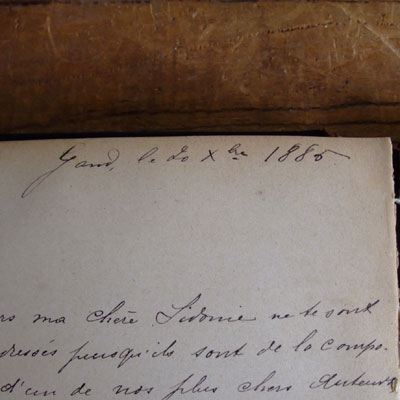 Gand, le 20 Xbre 1885
rs ma chère Sidonie ne te sont
dressés puisqu'ils sont de la compo-
d'un de nos plus chers Auteurs